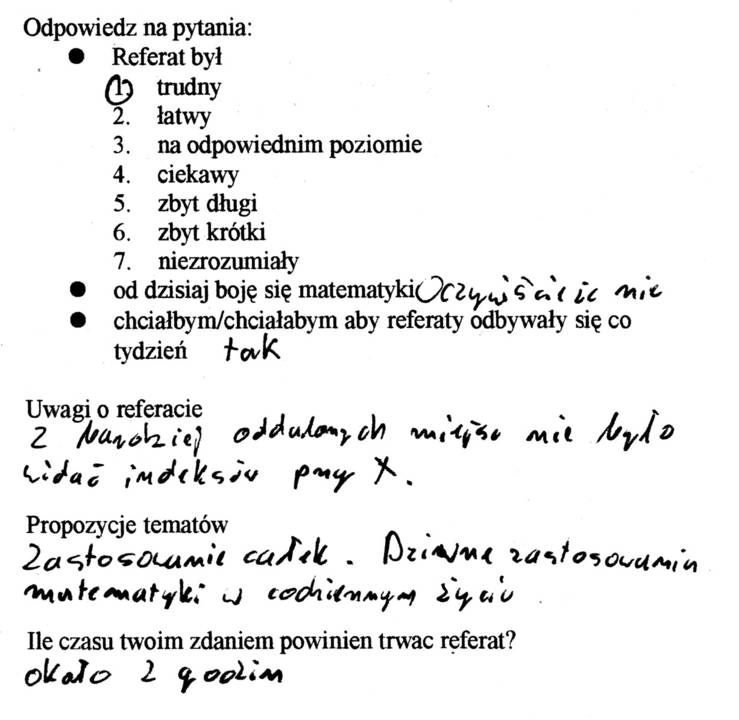 Odpowiedz na pytania:
● Referat był
1. trudny
2. łatwy
3. na odpowiednim poziomie
4. ciekawy
5. zbyt długi
6. zbyt krótki
7. niezrozumiały
● od dzisiaj boję się matematyki Oczywiście nie
● chciałbym/chciałabym aby referaty odbywały się co
tydzień tak
Uwagi o referacie
Z bardziej oddalonych miejsc nie było
widać indeksów przy X.
Propozycje tematów
Zastosowanie całek. Dziwne zastosowania
matematyki w codziennym życiu
Ile czasu twoim zdaniem powinien trwac referat?
około 2 godzin